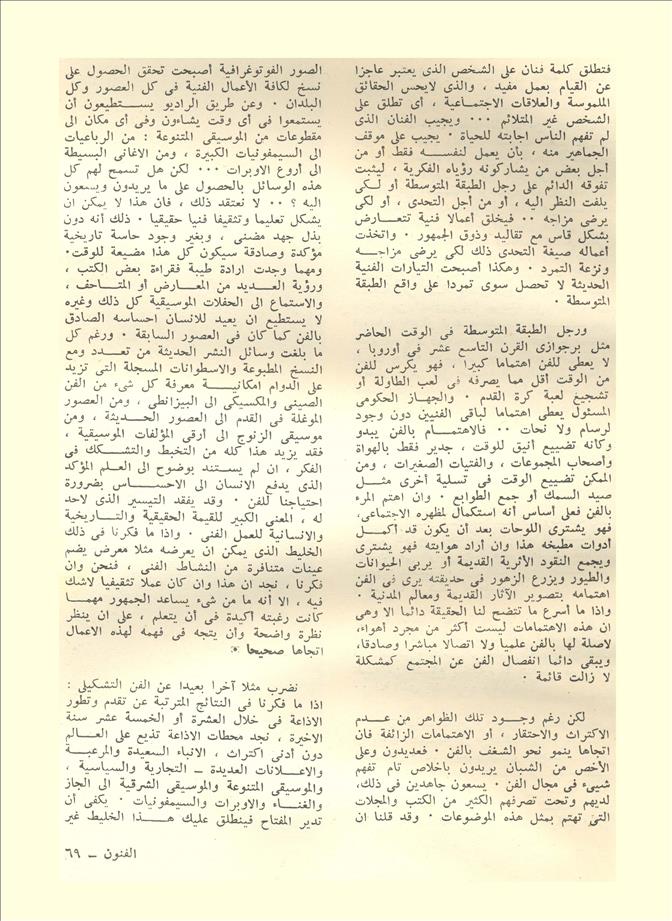 فتطلق كلمة فنان على الشخص الذى يعتبر عاجزا
عن القيام بعمل مفيد ، والذى لايحس الحقائق
الملموسة والعلاقات الاجتماعية ، أى تطلق على
الشخص غير المتلائم ٠٠٠ ويجيب الفنان الذى
لم تفهم الناس اجابته للحياة ٠ يجيب على موقف
الجماهير منه ، بأن يعمل لنفسه فقط أو من
أجل بعض من يشاركونه رؤياه الفكرية ، ليثبت
تفوقه الدائم على رجل الطبقة المتوسطة أو لكى
يلفت النظر اليه ، أو من أجل التحدى ، أو لكى
يرضى مزاجه ٠٠ فيخلق أعمالا فنية تتعارض
بشكل قاس مع تقاليد وذوق الجمهور ٠ واتخذت
أعماله صيغة التحدى ذلك لكى يرضى مزاجه
ونزعة التمرد ٠ وهكذا أصبحت التيارات الفنية
الحديثة لا تحصل سوى تمردا على واقع الطبقة
المتوسطة ٠
ورجل الطبقة المتوسطة فى الوقت الحاضر
مثل برجوازى القرن التاسع عشر فى أوروبا ،
لا يعطى للفن اهتماما كبيرا ، فهو يكرس للفن
من الوقت أقل مما يصرفه فى لعب الطاولة أو
تشجيع لعبة كرة القدم ٠ والجهاز الحكومى
المسئول يعطى اهتماما لباقى الفنيين دون وجود
لرسام ولا نحات ٠٠ فالاهتمام بالفن يبدو
وكأنه تضييع أنيق للوقت ، جدير فقط بالهواة
وأصحاب المجموعات ، والفتيات الصغيرات ، ومن
الممكن تضييع الوقت فى تسلية أخرى مثل
صيد السمك أو جمع الطوابع ٠ وان اهتم المرء
بالفن فعلى أساس أنه استكمال لمظهره الاجتماعى،
فهو يشترى اللوحات بعد أن يكون قد أكمل
أدوات مطبخه هذا وان أراد هوايته فهو يشترى
ويجمع النقود الأثرية القديمة أو يربى الحيوانات
والطيور ويزرع الزهور فى حديقته يرى فى الفن
اهتمامه بتصوير الآثار القديمة ومعالم المدنية ٠
واذا ما أسرع ما تتضح لنا الحقيقة دائما الا وهى
ان هذه الاهتمامات ليست أكثر من مجرد أهواء،
لاصلة لها بالفن علميا ولا اتصالا مباشرا وصادقا،
ويبقى دائما انفصال الفن عن المجتمع كمشكلة
لا زالت قائمة ٠
لكن رغم وجود تلك الظواهر من عدم
الاكتراث والاحتقار ، أو الاهتمامات الزائفة فان
اتجاها ينمو نحو الشغف بالفن ٠ فعديدون وعلى
الأخص من الشبان يريدون باخلاص تام تفهم
شيىء فى مجال الفن ٠ يسعون جاهدين فى ذلك،
لديهم وتحت تصرفهم الكثير من الكتب والمجلات
التى تهتم بمثل هذه الموضوعات ٠ وقد قلنا ان
الصور الفوتوغرافية أصبحت تحقق الحصول على
نسخ لكافة الأعمال الفنية فى كل العصور وكل
البلدان ٠ وعن طريق الراديو يستطيعون أن
يستمعوا فى أى وقت يشاءون وفى أى مكان الى
مقطوعات من الموسيقى المتنوعة : من الرباعيات
الى السيمفونيات الكبيرة ، ومن الاغانى البسيطة
الى أروع الاوبرات ٠٠٠ لكن هل تسمح لهم كل
هذه الوسائل بالحصول على ما يريدون ويسعون
اليه ؟ ٠٠ لا نعتقد ذلك ، فان هذا لا يمكن ان
يشكل تعليما وتثقيفا فنيا حقيقيا ٠ ذلك أنه دون
بذل جهد مضنى ، وبغير وجود حاسة تاريخية
مؤكدة وصادقة سيكون كل هذا مضيعة للوقت٠
ومهما وجدت ارادة طيبة فقراءة بعض الكتب ،
ورؤية العديد من المعارض أو المتاحف ،
والاستماع الى الحفلات الموسيقية كل ذلك وغيره
لا يستطيع ان يعيد للانسان احساسه الصادق
بالفن كما كان فى العصور السابقة ٠ ورغم كل
ما بلغت وسائل النشر الحديثة من تعدد ومع
النسخ المطبوعة والاسطوانات المسجلة التى تزيد
على الدوام امكانية معرفة كل شىء من الفن
الصينى والمكسيكى الى البيزانطى ، ومن العصور
الموغلة فى القدم الى العصور الحديثة ، ومن
موسيقى الزنوج الى أرقى المؤلفات الموسيقية ،
فقد يزيد هذا كله من التخبط والتشكك فى
الفكر ، ان لم يستند بوضوح الى العلم المؤكد
الذى يدفع الانسان الى الاحساس بضرورة
احتياجنا للفن ٠ وقد يفقد التيسير الذى لاحد
له ، المعنى الكبير للقيمة الحقيقية والتاريخية
والانسانية للعمل الفنى ٠ واذا ما فكرنا فى ذلك
الخليط الذى يمكن ان يعرضه مثلا معرض يضم
عينات متنافرة من النشاط الفنى ، فنحن وان
فكرنا ، نجد ان هذا وان كان عملا تثقيفيا لاشك
فيه ، الا أنه ما من شىء يساعد الجمهور مهما
كانت رغبته أكيدة فى أن يتعلم ، على ان ينظر
نظرة واضحة وأن يتجه فى فهمه لهذه الاعمال
اتجاها صحيحا
نضرب مثلا آخرا بعيدا عن الفن التشكيلى :
اذا ما فكرنا فى النتائج المترتبة عن تقدم وتطور
الاذاعة فى خلال العشرة أو الخمسة عشر سنة
الاخيرة ، نجد محطات الاذاعة تذيع على العالم
دون أدنى اكتراث ، الانباء السعيدة والمرعبة
والاعلانات العديدة ـ التجارية والسياسية ،
والموسيقى المتنوعة والموسيقى الشرقية الى الجاز
والغناء والاوبرات والسيمفونيات ٠ يكفى أن
تدير المفتاح فينطلق عليك هذا الخليط غير
الفنون ـ ٦٩